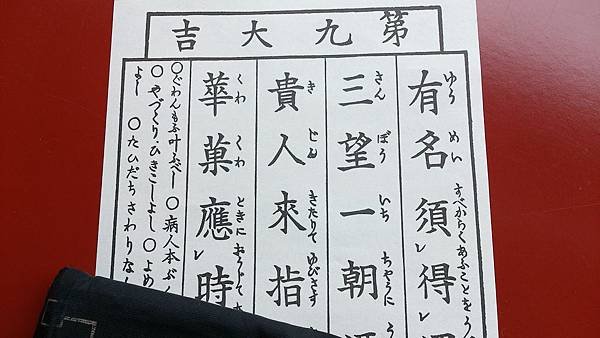 第九大吉
有名須得
ゆう めい すべからくあふことをう
三望一朝
さん ぼう いち ちやうに
貴人來指
き じん きたりて ゆびさす
華菓應時
くわ くわ ときにおうじて
〇ぐわんもふ叶ふべし 〇病人本ぶく
〇やづくり、ひきこしよし 〇よめ
よし 〇たびだちさわりなし